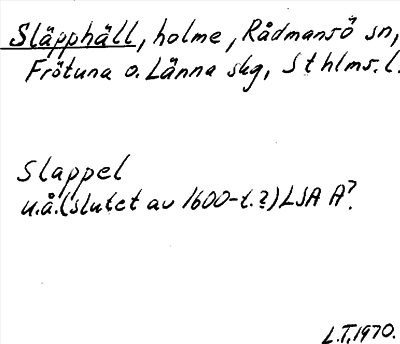 Släpphäll, holme, Rådmansö sn,
Frötuna o. Länna skg, Sthlms. l.
Slappel
u.å. (slutet av 1600-t.?) LSA A?
L.T. 1970.